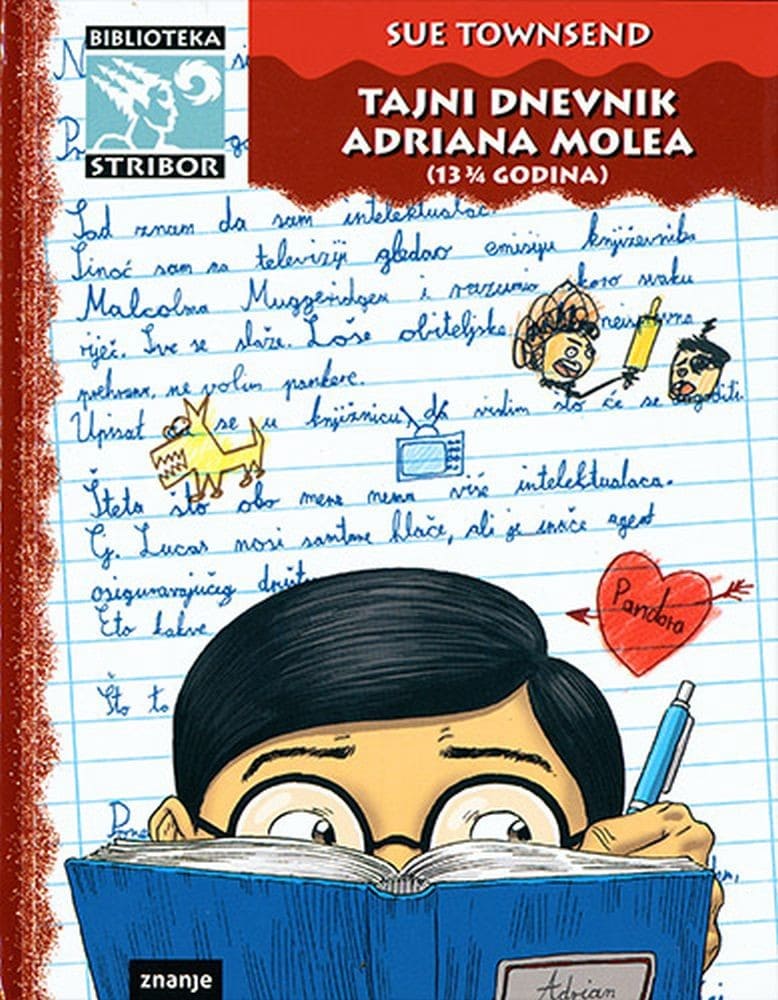 BIBLIOTEKA
STRIBOR
SUE TOWNSEND
TAJNI DNEVNIK
ADRIANA MOLEA
(13 ¾ GODINA)
Sad znam da sam intelektualac.
Sinoć sam na televiziji gledao emisiju književnika
Malcolma Muggeridgea i razumio koro svaku
riječ. Sve se slaže. Loše obiteljske neispravna
prehrana, ne volim pankere.
Upisat ću se u knjižnicu da vidim što će se dogoditi.
Šteta što oko mene nema više intelektualaca.
G. Lucas nosi samtane hlače, ali je inače agent
osiguravajućeg društ
Eto kakve
Što to
Pandora
Pone
Adrian
znanje